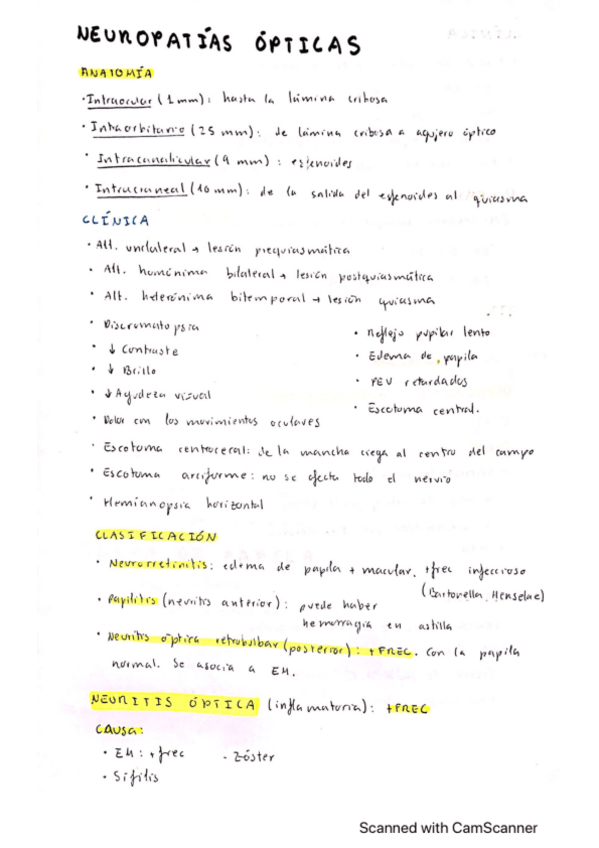 NEUROPATÍAS ÓPTICAS
ANATOMÍA
· Intraocular (1 mm): hasta la lámina cribosa
· Intraorbitario (25 mm): de lámina cribosa a agujero óptico
· Intracanalicular (9 mm): esfenoides
· Intracraneal (16 mm): de la salida del esfenoides al quiasma
CLÍNICA
· Alt. unilateral → lesión prequiasmática
· Alt. homónima bilateral → lesión postquiasmática
· Alt. heterónima bitemporal → lesión quiasma
· Discromatopsia
· ↓ Contraste
· ↓ Brillo
· ↓ Agudeza visual
· Dolor con los movimientos oculares
· Reflejo pupilar lento
· Edema de papila
· PEV retardados
· Escotoma central.
· Escotoma centrocecal: de la mancha ciega al centro del campo
· Escotoma arciforme: no se afecta todo el nervio
· Hemianopsia horizontal
CLASIFICACIÓN
· Neurorretinitis: edema de papila + macular. +frec infeccioso
(Bartonella Henselae)
· Papilitis (neuritis anterior): puede haber
hemorragia en astilla
· Neuritis óptica retrobulbar (posterior): +FREC. Con la papila
normal. Se asocia a EM.
NEURITIS ÓPTICA (inflamatoria): +FREC
CAUSA:
· EM: +frec · Zóster
· Sífilis
Scanned with CamScanner